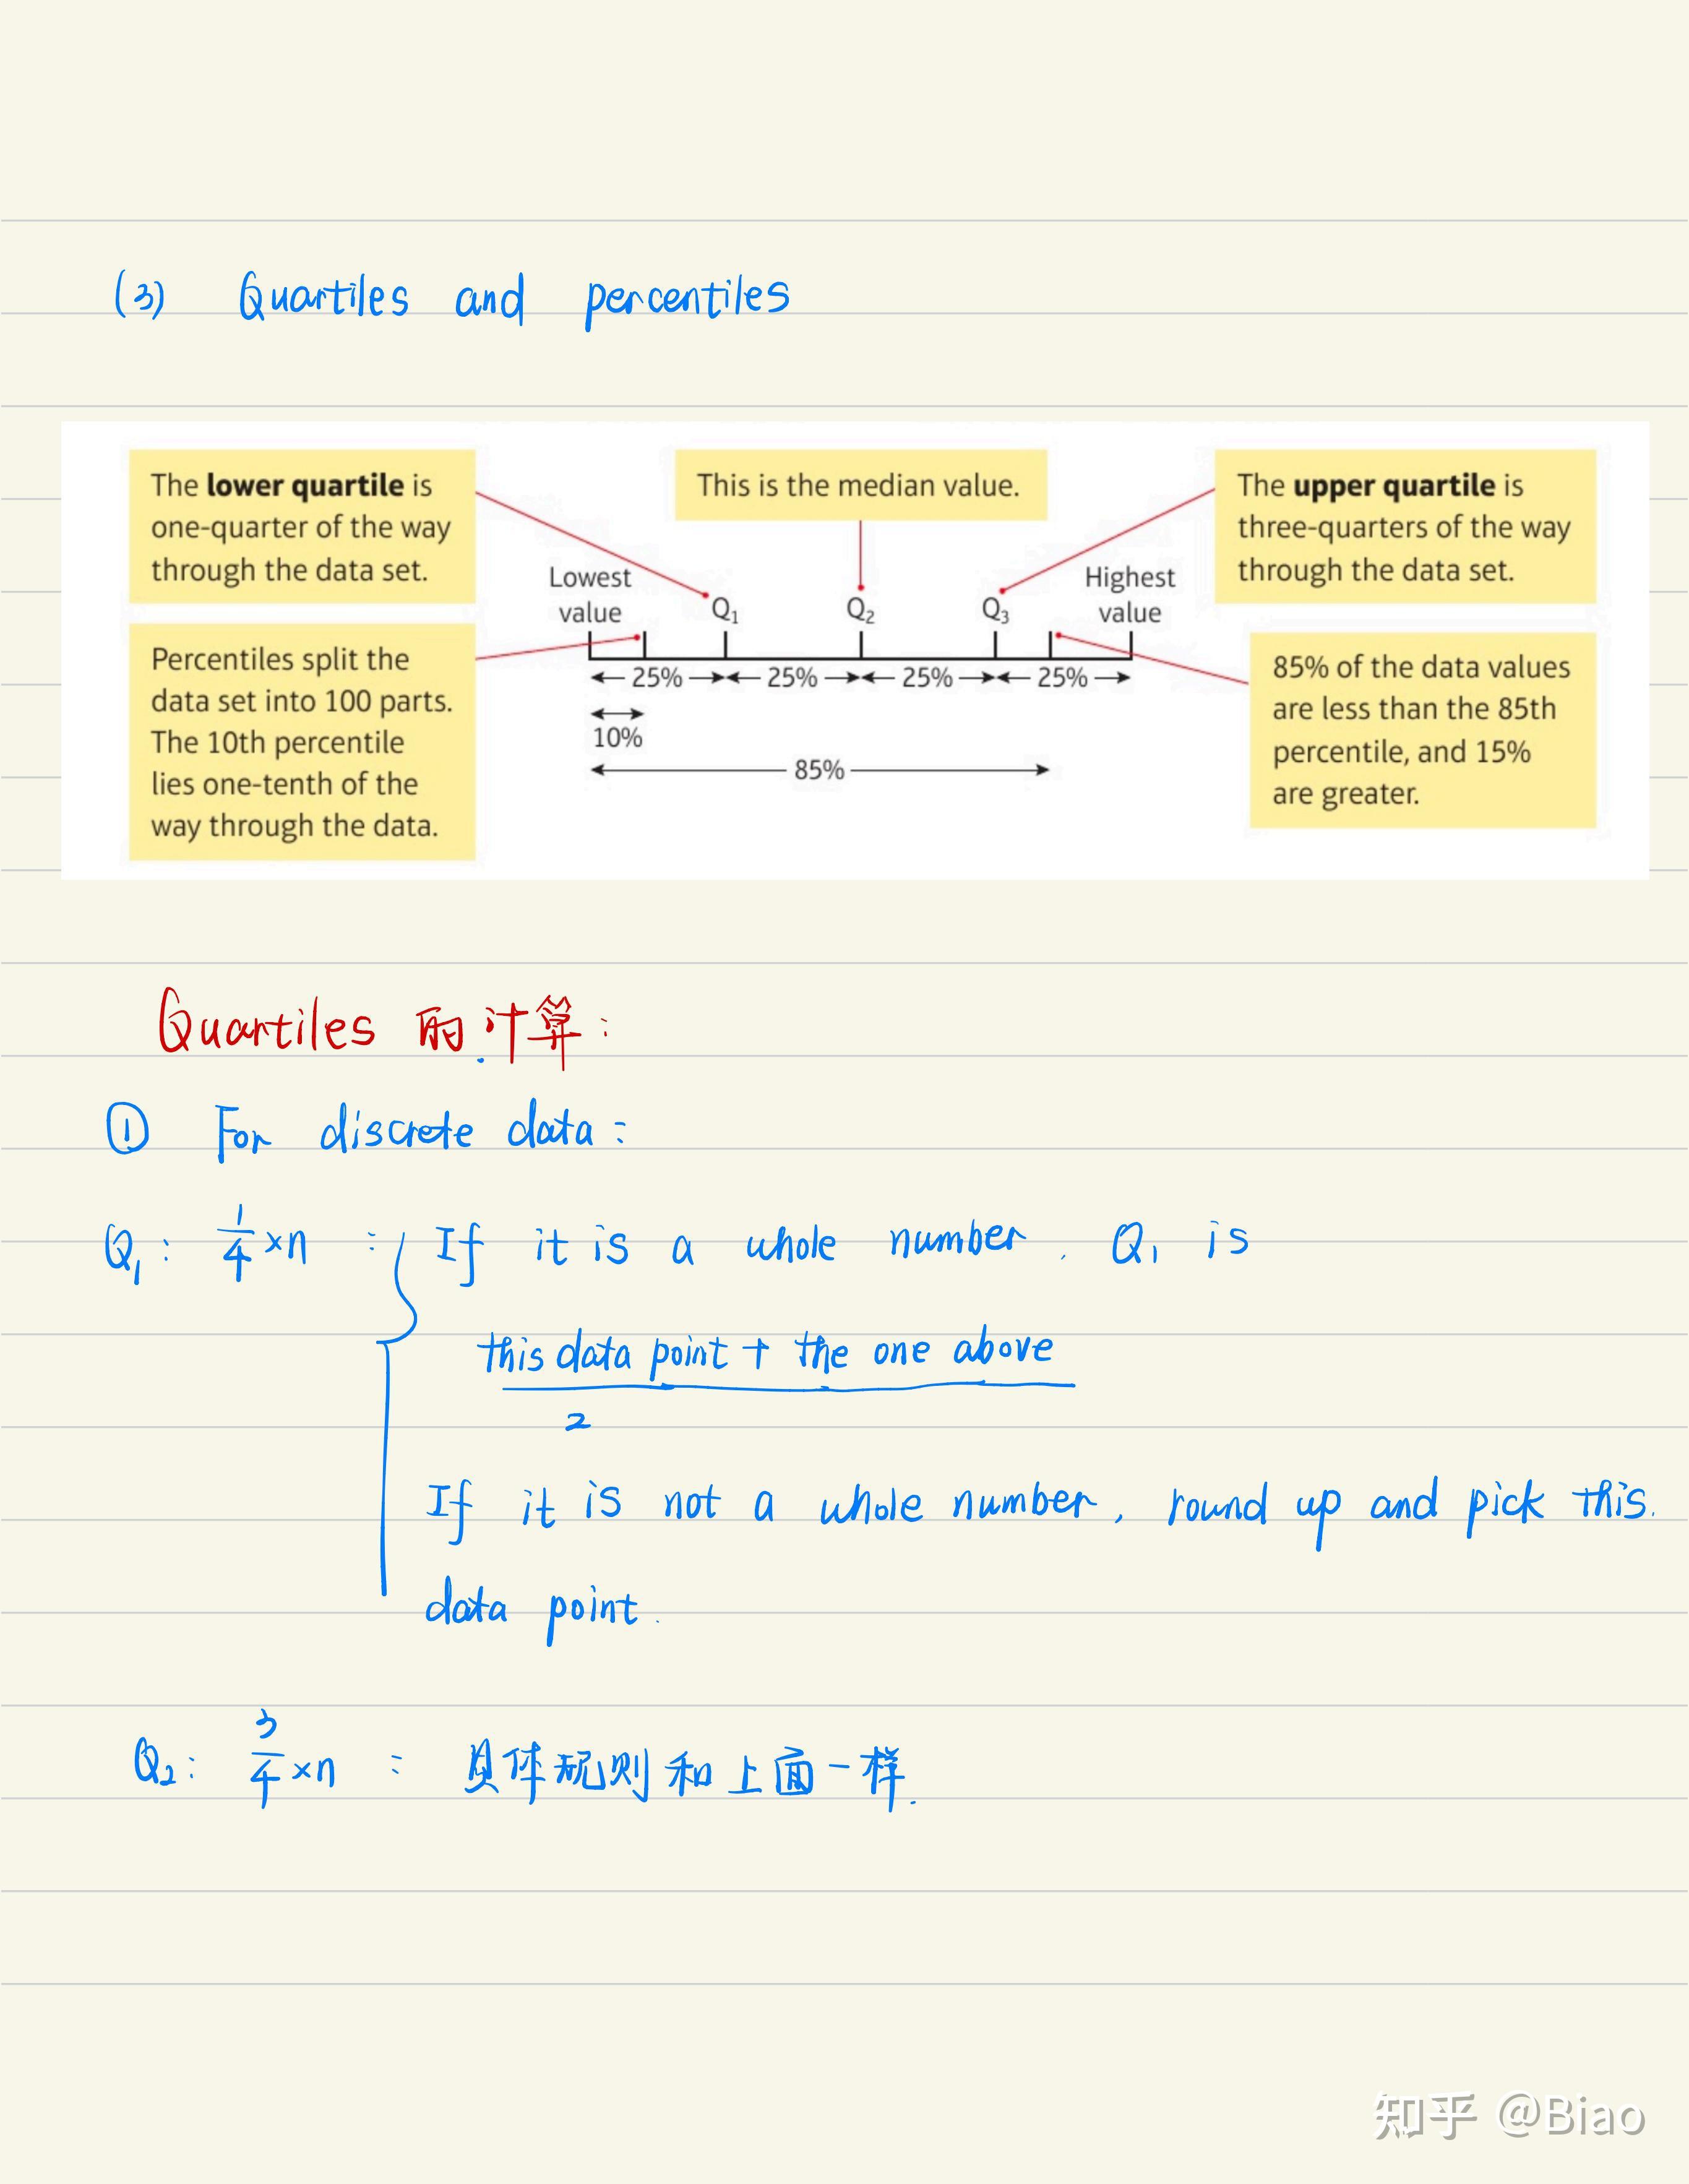 (3) Quartiles and percentiles
The lower quartile is
one-quarter of the way
through the data set.
This is the median value.
The upper quartile is
three-quarters of the way
through the data set.
Lowest
value
Q₁
Q₂
Q₃
Highest
value
Percentiles split the
data set into 100 parts.
The 10th percentile
lies one-tenth of the
way through the data.
25% 25% 25% 25%
10%
85%
85% of the data values
are less than the 85th
percentile, and 15%
are greater.
Quartiles 的计算:
① For discrete data:
Q₁: 1/4 × n : If it is a whole number. Q₁ is
this data point + the one above
2
If it is not a whole number, round up and pick this.
data point.
Q₂: 3/4 × n : 具体规则和上面一样.
知乎 @Biao